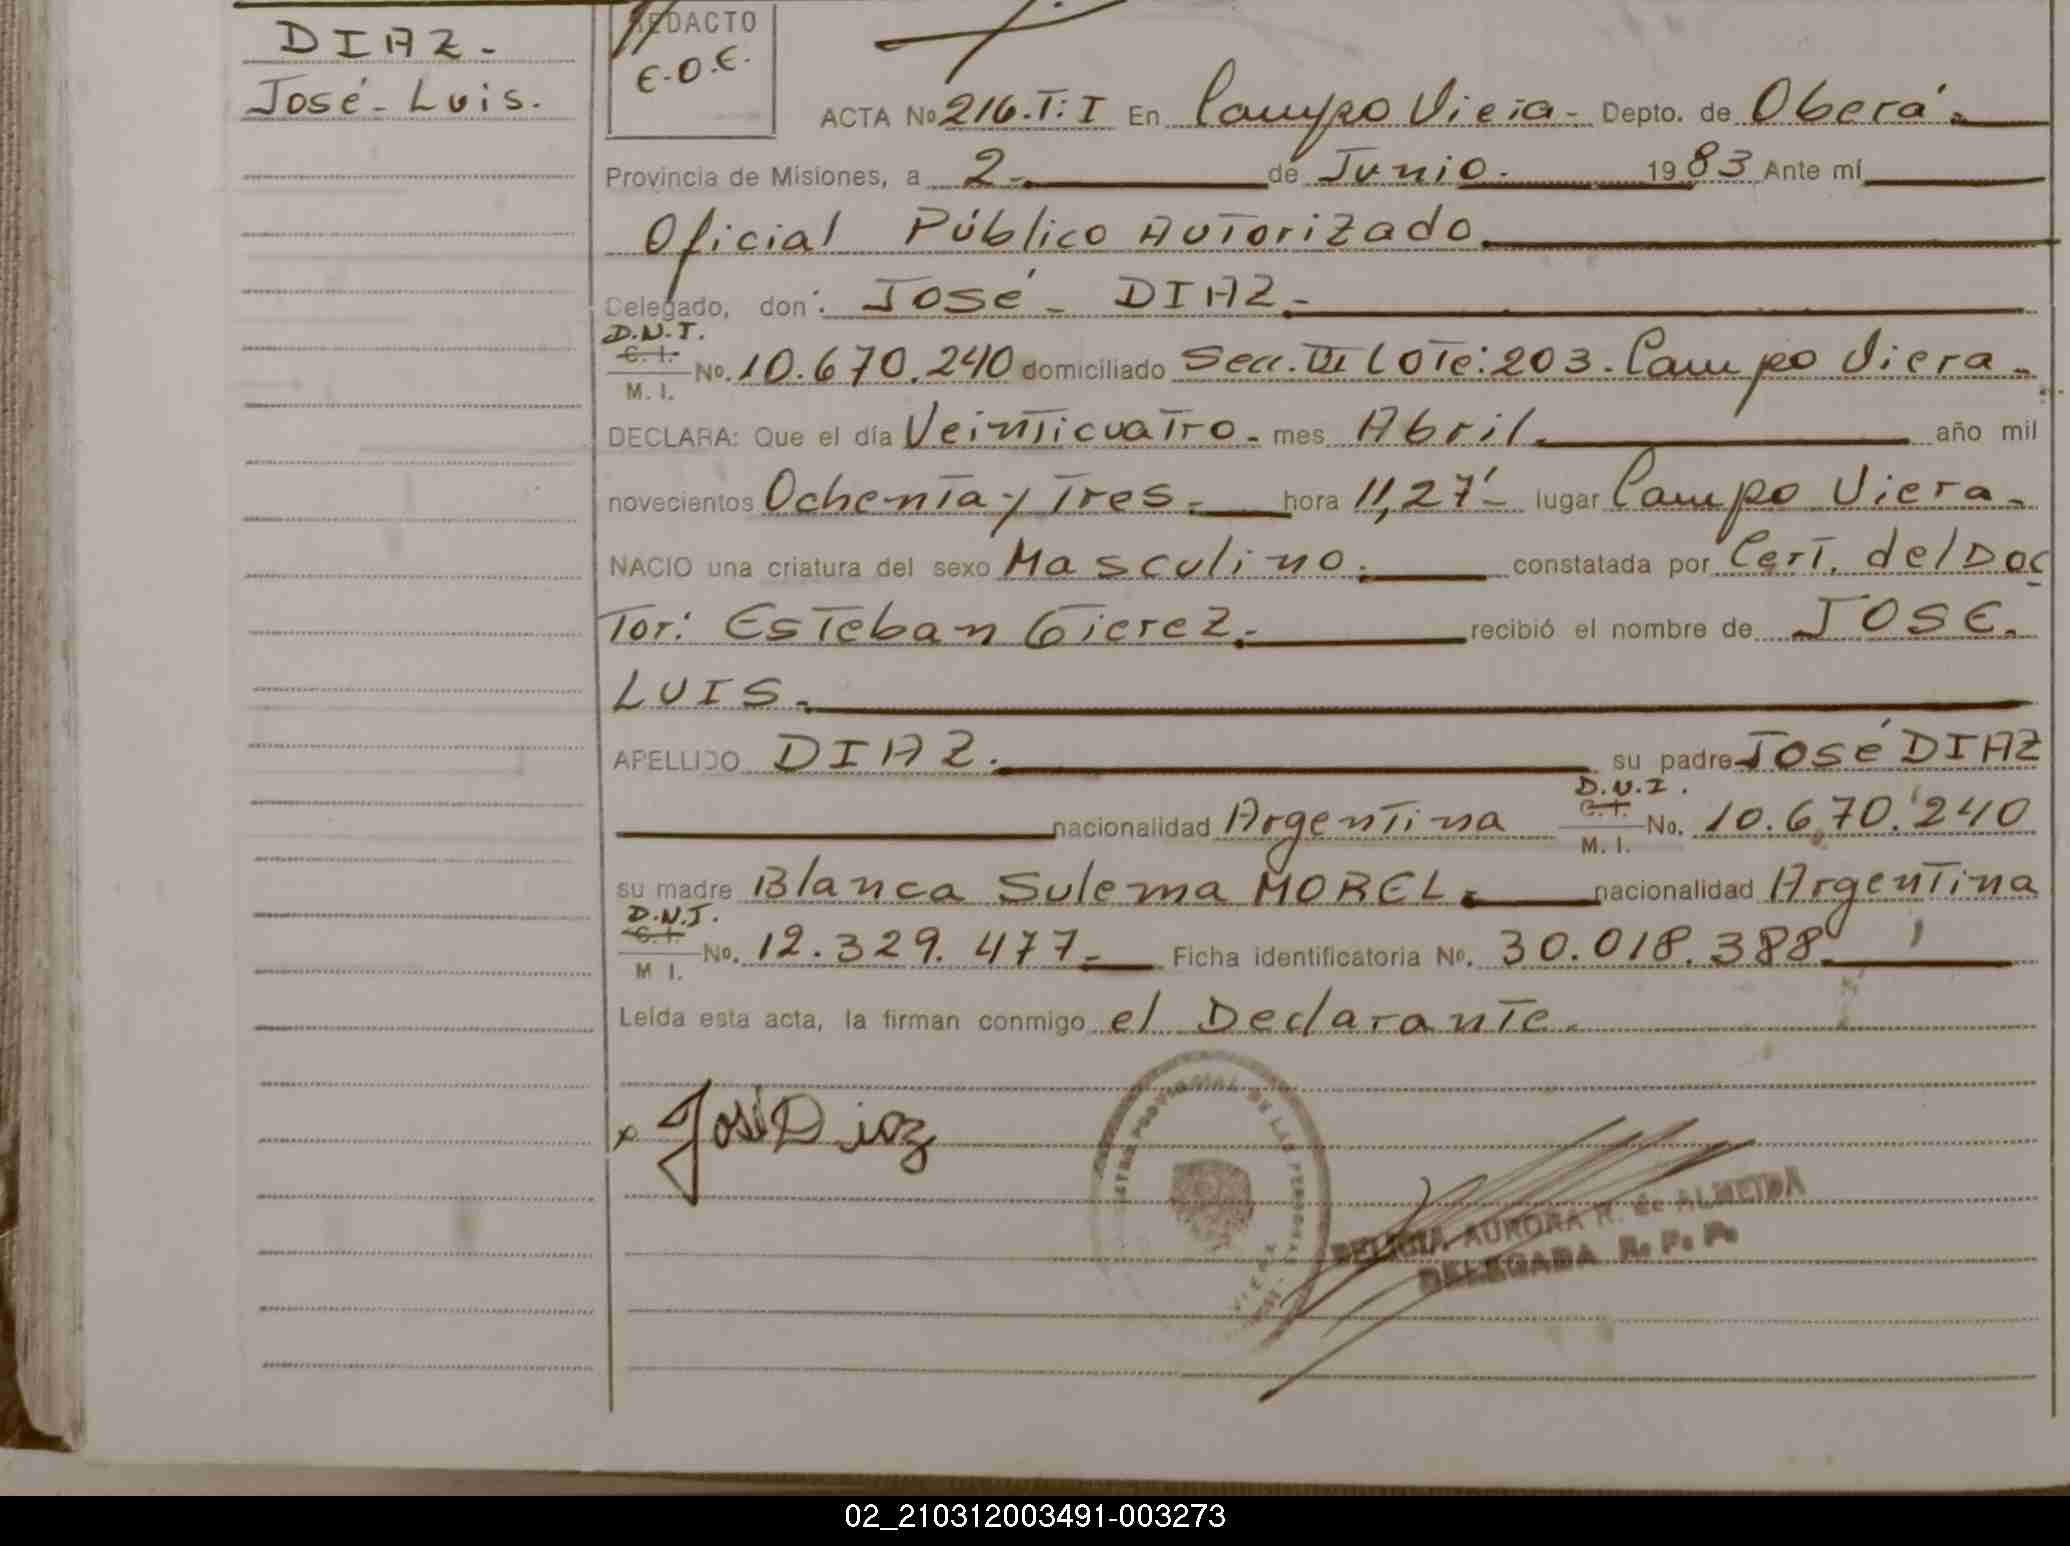 DIAZ.
José - Luis.
REDACTO
E.O.E.
ACTA No 216.T: I En Campo Viera - Depto. de Oberá.
Provincia de Misiones, a 2 - de Junio. 1983 Ante mí
Oficial Público Autorizado
Delegado, don: José - DIAZ.
D.N.I.
C. I.
M. I.
No. 10.670.240 domiciliado Secc. III LOTE: 203. Campo Viera.
DECLARA: Que el día Veinticuatro. mes Abril. año mil
novecientos Ochenta y Tres. hora 11,27' - lugar Campo Viera.
NACIO una criatura del sexo Masculino. constatada por Cert. del Doc
Tor: Esteban Gierez. recibió el nombre de JOSE.
LUIS.
APELLIDO DIAZ. su padre José DIAZ
nacionalidad Argentina D.N.I. C. I. M. I. No. 10.670.240
su madre Blanca Sulema MOREL. nacionalidad Argentina
D.N.I. C. I. M I. No. 12.329.477. Ficha identificatoria No. 30.018.388.
Leída esta acta, la firman conmigo el Declarante.
x José Diaz
PROVINCIAL DE LAS PERSONAS
VIERA
AURORA R. de ALMEIDA
DELEGADA R. P. P.
02_210312003491-003273